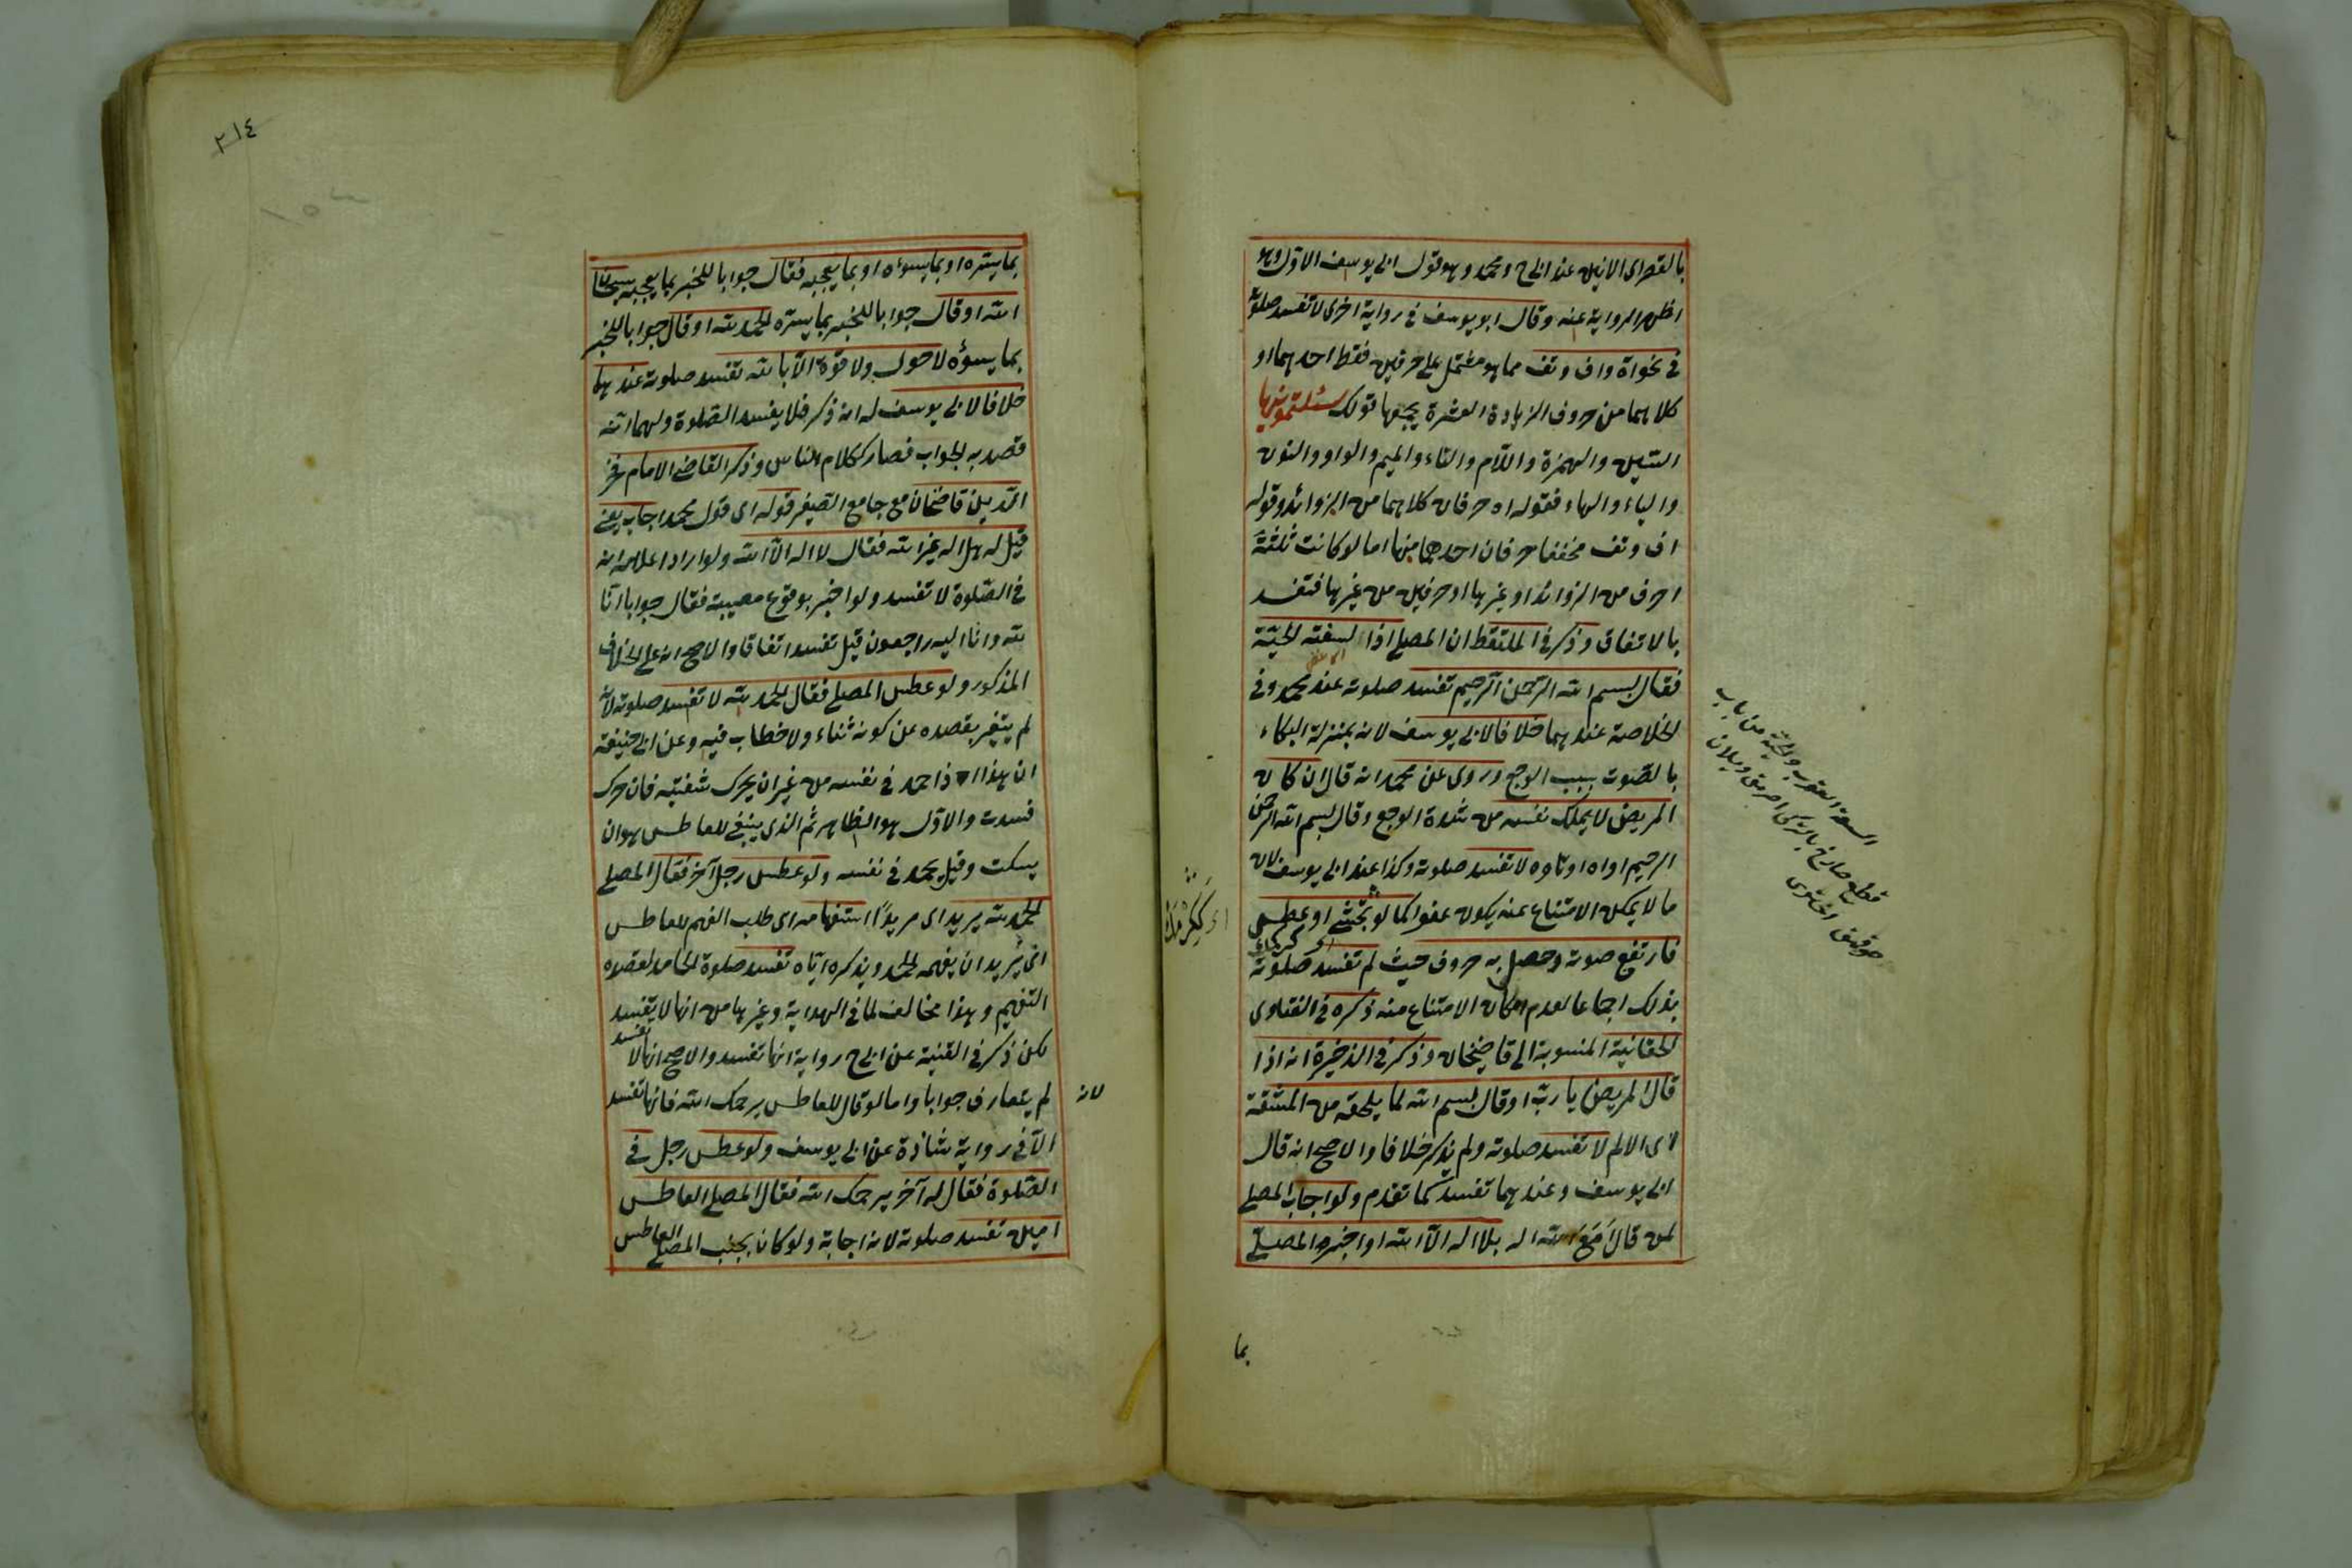 بالقصر اى الانين عند ابى ح ومحمد وهو قول ابى يوسف الاول وهو
اظهر الرواية عنه وقال ابو يوسف فى رواية اخرى لا تفسد صلوته
فى نحو اة واف وتف مما هو مشتمل على حرفين فقط احدهما او
كلاهما من حروف الزيادة العشرة يجمعها قولك سئلتمونيها
السين والهمزة واللام والتاء والميم والواو والنون
والياء والهاء فقوله اه حرفان كلاهما من الزوائد وقوله
اف وتف مخففا حرفان احدهما منها اما لو كانت ثلثة
احرف من الزوائد او غيرها او حرفين من غيرها فتفسد
بالاتفاق وذكر فى الملتقط ان المصلى اذا لسعته الحية
فقال بسم الله الرحمن الرحيم تفسد صلوته عند محمد وفى
الخلاصة عندهما خلافا لابى يوسف لانه بمنزلة البكاء
بالصوت بسبب الوجع وروى عن محمد انه قال ان كان
المريض لا يملك نفسه من شدة الوجع وقال بسم الله الرحمن
الرحيم او اه او تاوه لا تفسد صلوته وكذا عند ابى يوسف لان
ما لا يمكن الامتناع عنه يكون عفوا كما لو تجشئ او عطس
فارتفع صوته وحصل به حروف حيث لم تفسد صلوته
بذلك اجماعا لعدم امكان الامتناع منه ذكره فى الفتاوى
الحقانية المنسوبة الى قاضيخان وذكر فى الذخيرة انه اذا
قال المريض يا رب او قال بسم الله لما يلحقه من المشقة
اى الالم لا تفسد صلوته ولم يذكر خلافا والاصح انه قال
ابى يوسف وعندهما تفسد كما تقدم ولو اجاب المصلى
لمن قال أمع الله اله بلا اله الا الله او اخبر المصلى
بما
السعة العقرب والحية من باب
قطع
٢١٤
بما يسره او بما يسوءه او بما يعجبه فقال جوابا للخبر بما يعجبه سبحان
الله او قال جوابا للخبر بما يسره الحمد لله او قال جوابا للخبر
بما يسؤه لا حول ولا قوة الا بالله تفسد صلوته عندهما
خلافا لابى يوسف له انه ذكر فلا يفسد الصلوة ولهما انه
قصد به الجواب فصار ككلام الناس وذكر القاضى الامام فخر
الدين قاضخان مع جامع الصغير قوله اى قول محمد اجاب يعنى
قيل له هل اله غير الله فقال لا اله الا الله ولو اراد اعلامه انه
فى الصلوة لا تفسد ولو اخبر بوقوع مصيبة فقال جوابا انا
لله وانا اليه راجعون قيل تفسد اتفاقا والاصح انه على الخلاف
المذكور ولو عطس المصلى فقال الحمد لله لا تفسد صلوته لانه
لم يتغير بقصده عن كونه ثناء ولا خطاب فيه وعن ابى حنيفة
ان هذا اذا حمد فى نفسه من غير ان يحرك شفتيه فان حرك
فسدت والاول هو الظاهر ثم الذى ينبغى للعاطس هو ان
يسكت وقيل يحمد فى نفسه ولو عطس رجل آخر فقال المصلى
الحمد لله يريد اى مريدا استفهامه اى طلب الفهم للعاطس
اى يريد ان يفهمه الحمد ويذكره اياه تفسد صلوة الحامد لقصده
التفهيم وهذا مخالف لما فى الهداية وغيرها من انها لا يفسد
لكن ذكر فى القنية عن ابى ح رواية انها تفسد والاصح انها لا تفسد
لانه
لم يتعارف جوابا واما لو قال للعاطس يرحمك الله فانها تفسد
الا فى رواية شاذة عن ابى يوسف ولو عطس رجل فى
الصلوة فقال له آخر يرحمك الله فقال المصلى العاطس
امين تفسد صلوته لانه اجابة ولو كان بجنب المصلى العاطس